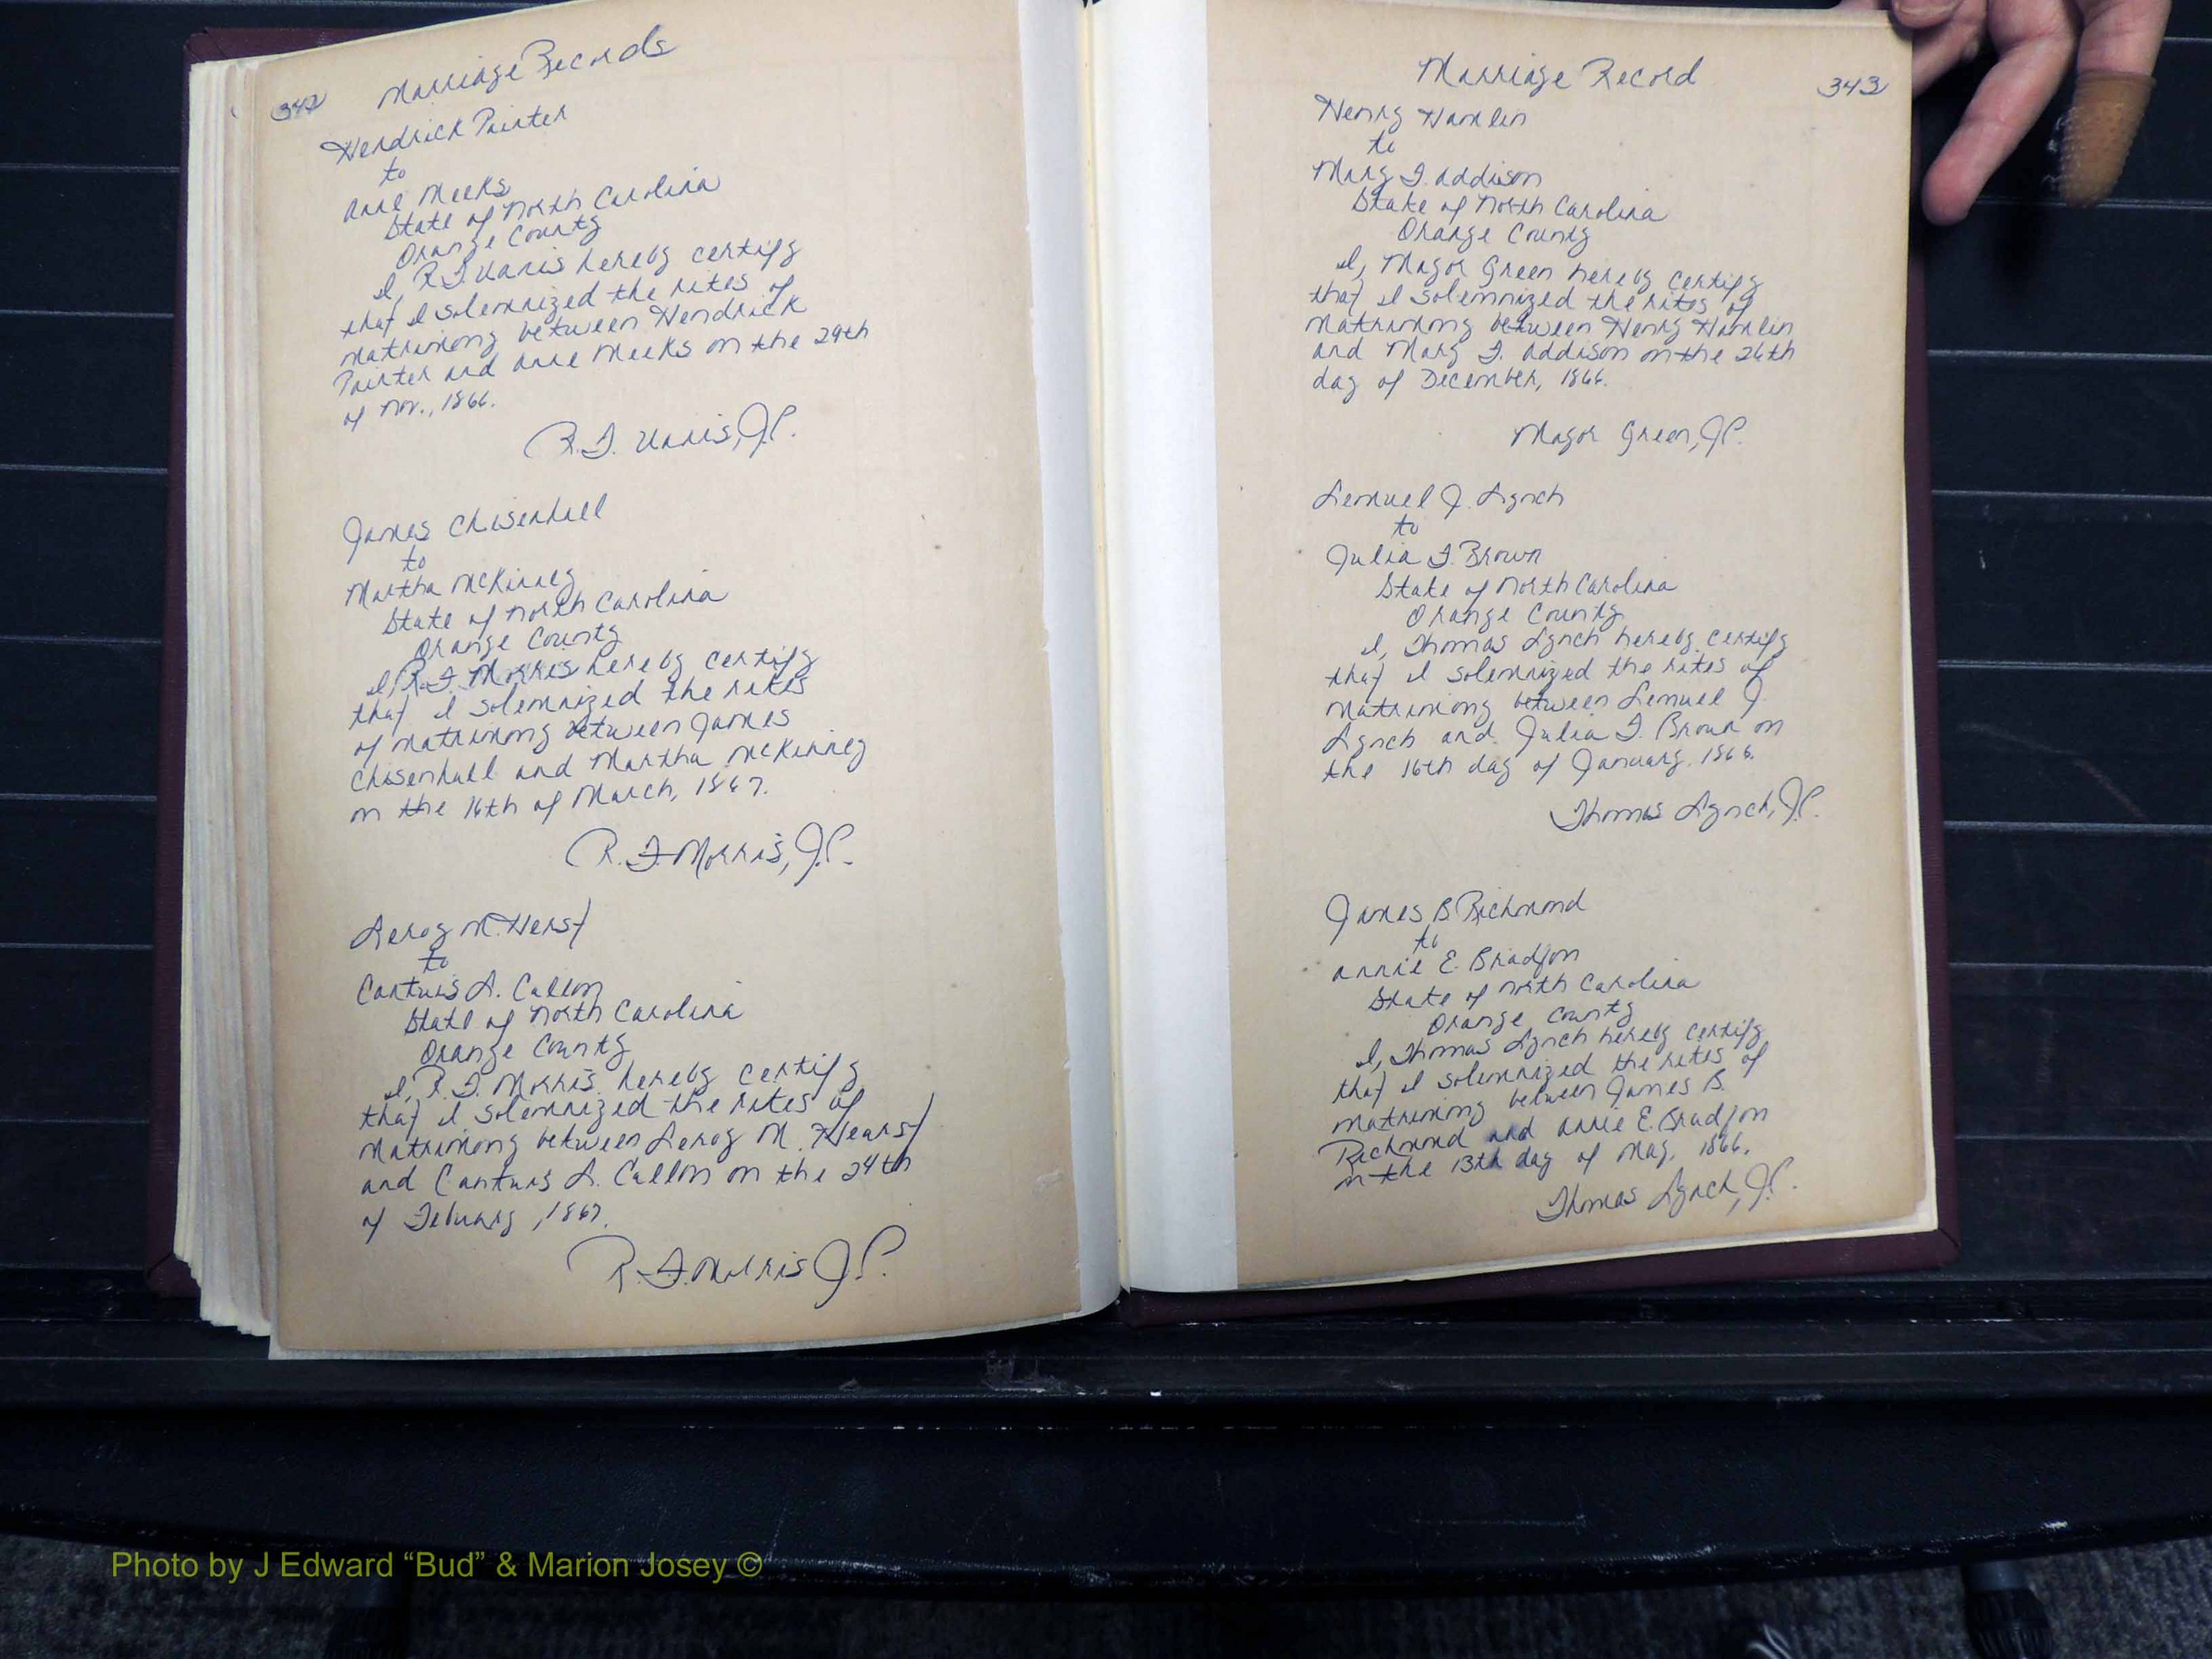 342 Marriage Records
Hendrick Painter
to
Anne Meeks
State of North Carolina
Orange County
I, R.F. hereby certify
that I solemnized the rites of
matrimony between Hendrick
Painter and Anne Meeks on the 29th
of Nov., 1866.
R.F. J.P.
James Chisenhall
to
Martha McKinney
State of North Carolina
Orange County
I, R.F. Morris hereby certify
that I solemnized the rites
of matrimony between James
Chisenhall and Martha McKinney
on the 16th of March, 1867.
R.F. Morris, J.P.
Leroy M. Herst
to
L.
State of North Carolina
Orange County
I, R.F. Morris hereby certify
that I solemnized the rites of
matrimony between Leroy M. Hearst
and L. on the 24th
of Febuary, 1867.
R.F. Morris J.P.
Marriage Record 343
Henry Hamlin
to
Mary F. Addison
State of North Carolina
Orange County
I, Major Green hereby certify
that I solemnized the rites of
matrimony between Henry Hamlin
and Mary F. Addison on the 26th
day of December, 1866.
Major Green, J.P.
Lemuel J. Lynch
to
Julia F. Brown
State of North Carolina
Orange County
I, Thomas Lynch hereby certify
that I solemnized the rites of
matrimony between Lemuel J.
Lynch and Julia F. Brown on
the 16th day of January, 1866.
Thomas Lynch, J.P.
James B. Richmond
to
Annie E. Bradjon
State of North Carolina
Orange County
I, Thomas Lynch hereby certify
that I solemnized the rites of
matrimony between James B.
Richmond and Annie E. Bradjon
on the 13th day of May, 1866.
Thomas Lynch, J.P.
Photo by J Edward “Bud” & Marion Josey ©